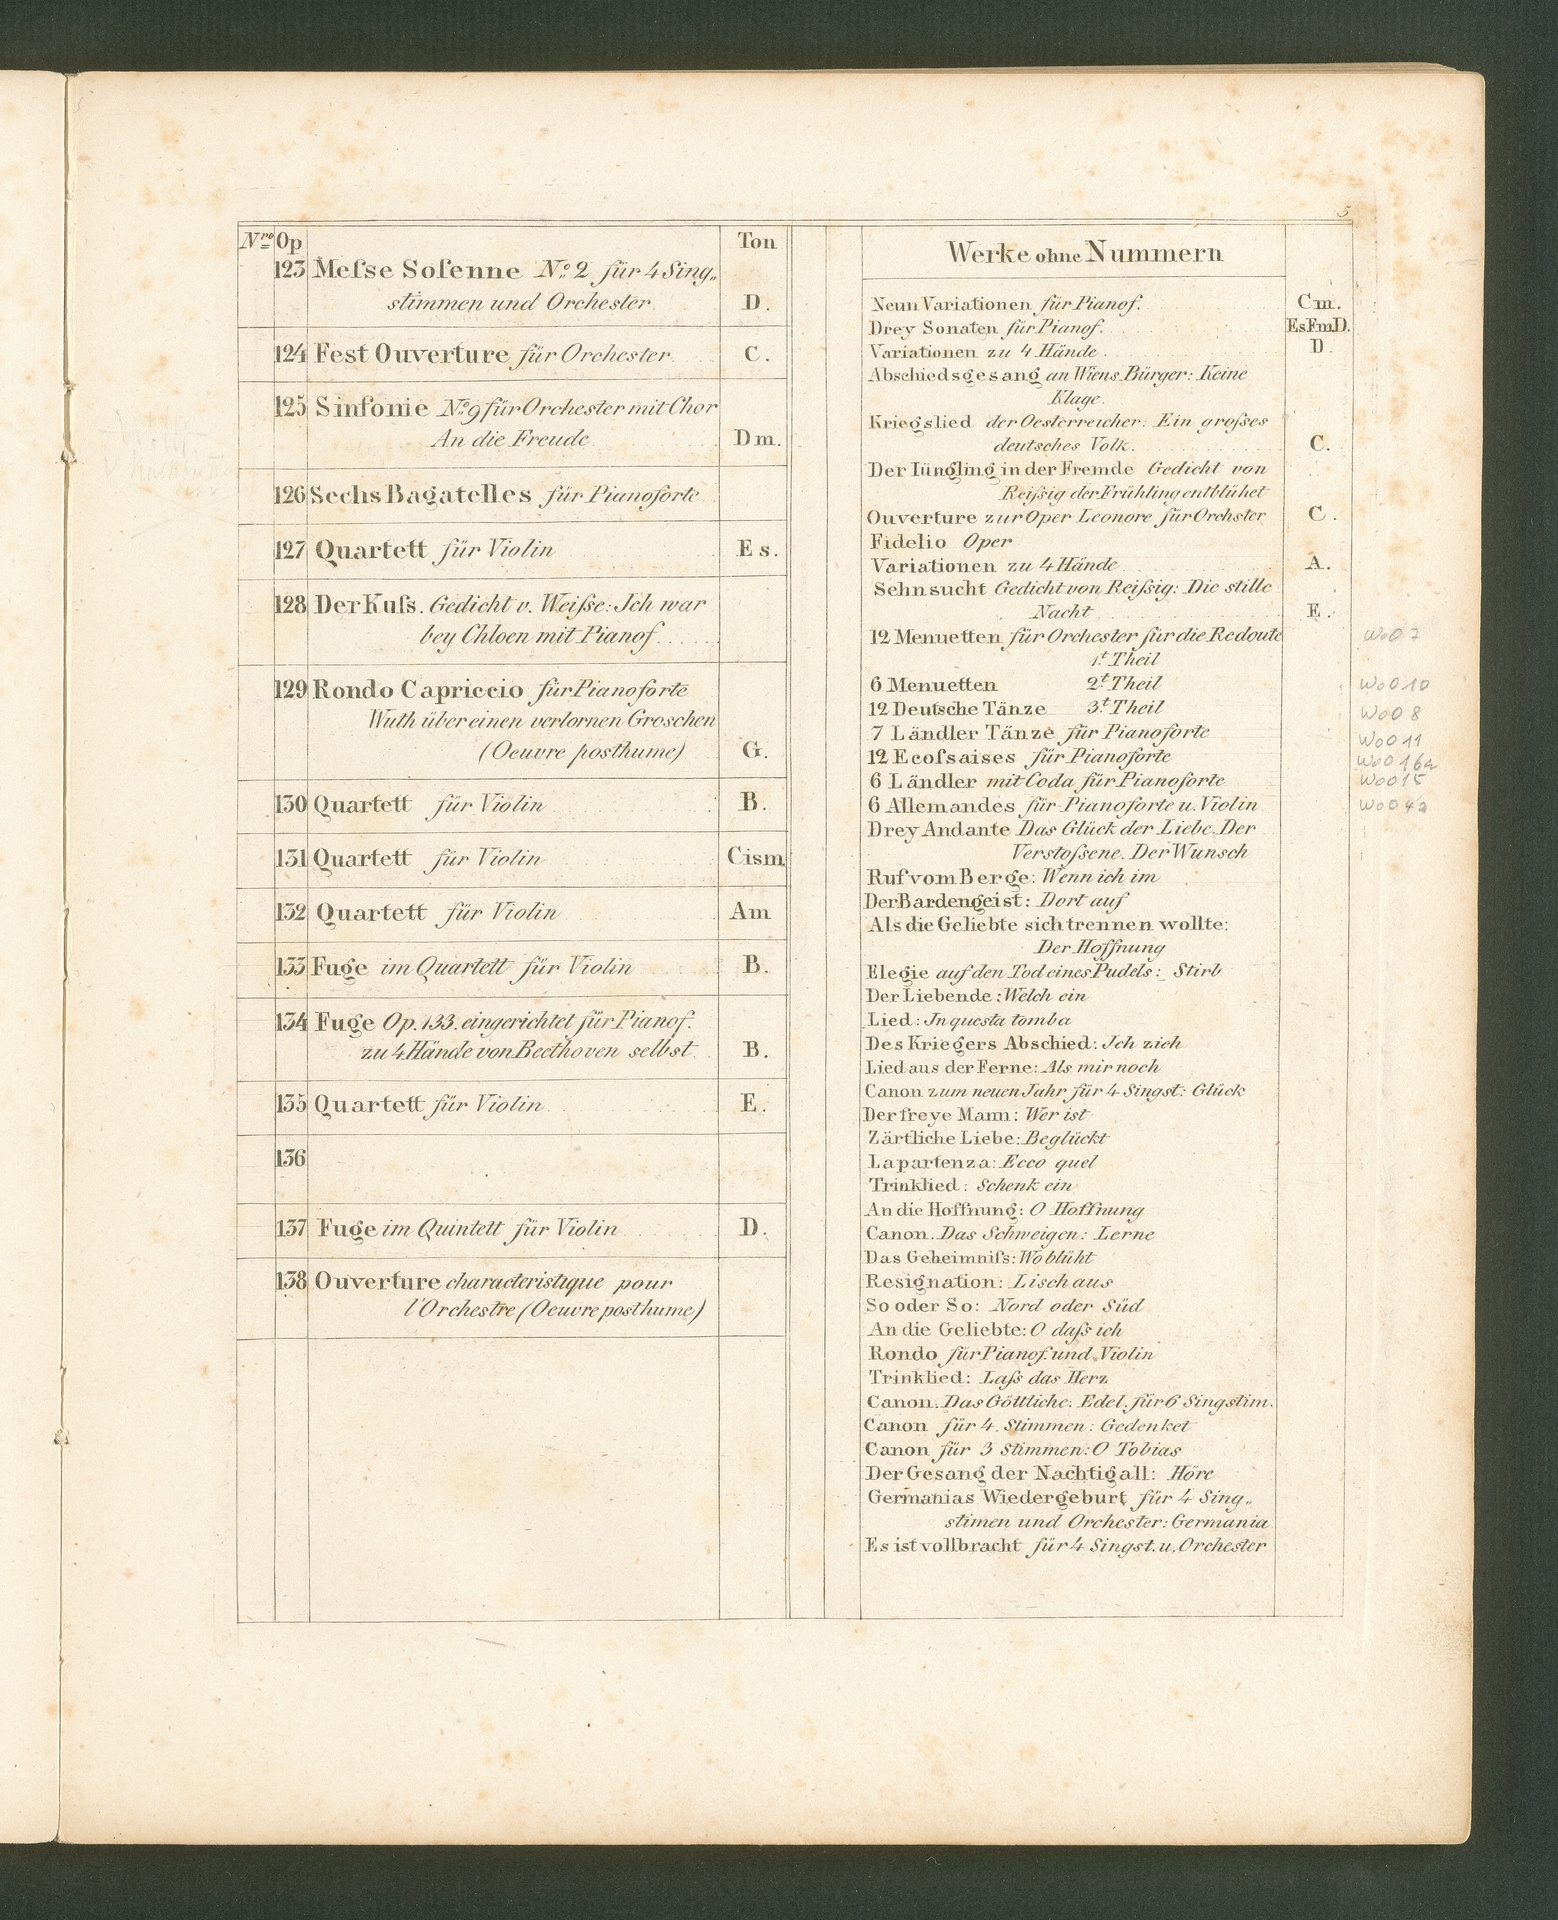 5
Nro Op Ton
123 Meſse Solenne No. 2 für 4 Sing„
stimmen und Orchester D.
124 Fest Ouverture für Orchester C.
125 Sinfonie No. 9 für Orchester mit Chor
An die Freude Dm.
126 Sechs Bagatelles für Pianoforte
127 Quartett für Violin Es.
128 Der Kuſs. Gedicht v. Weiſse: Ich war
bey Chloen mit Pianof.
129 Rondo Capriccio für Pianoforte
Wuth über einen verlornen Groschen
(Oeuvre posthume) G.
130 Quartett für Violin B.
131 Quartett für Violin Cism
132 Quartett für Violin Am
133 Fuge im Quartett für Violin B.
134 Fuge Op. 133. eingerichtet für Pianof.
zu 4 Hände von Beethoven selbst B.
135 Quartett für Violin E.
136
137 Fuge im Quintett für Violin D.
138 Ouverture characteristique pour
l'Orchestre (Oeuvre posthume)
Werke ohne Nummern
Neun Variationen für Pianof. Cm.
Drey Sonaten für Pianof. Es Fm D.
Variationen zu 4 Hände. D.
Abschiedsgesang an Wiens Bürger: Keine
Klage.
Kriegslied der Oesterreicher: Ein groſses
deutsches Volk. C.
Der Iüngling in der Fremde Gedicht von
Reiſsig der Frühling entblühet
Ouverture zur Oper Leonore für Orchster C.
Fidelio Oper
Variationen zu 4 Hände A.
Sehnsucht Gedicht von Reiſsig: Die stille
Nacht E.
12 Menuetten für Orchester für die Redoute WoO 7
1t. Theil
6 Menuetten 2t. Theil WoO 10
12 Deutsche Tänze 3t. Theil WoO 8
7 Ländler Tänze für Pianoforte WoO 11
12 Ecoſsaises für Pianoforte WoO 16a
6 Ländler mit Coda für Pianoforte WoO 15
6 Allemandes für Pianoforte u. Violin WoO 42
Drey Andante Das Glück der Liebe. Der
Verstoſsene. Der Wunsch
Ruf vom Berge: Wenn ich im
Der Bardengeist: Dort auf
Als die Geliebte sich trennen wollte:
Der Hoffnung
Elegie auf den Tod eines Pudels: Stirb
Der Liebende: Welch ein
Lied: In questa tomba
Des Kriegers Abschied: Ich zieh
Lied aus der Ferne: Als mir noch
Canon zum neuen Jahr für 4 Singst: Glück
Der freye Mann: Wer ist
Zärtliche Liebe: Beglückt
La partenza: Ecco quel
Trinklied: Schenk ein
An die Hoffnung: O Hoffnung
Canon. Das Schweigen: Lerne
Das Geheimniſs: Wo blüht
Resignation: Lisch aus
So oder So: Nord oder Süd
An die Geliebte: O daſs ich
Rondo für Pianof. und Violin
Trinklied: Laſs das Herz
Canon. Das Göttliche: Edel. für 6 Singstim.
Canon für 4. Stimmen: Gedenket
Canon für 3 Stimmen: O Tobias
Der Gesang der Nachtigall: Höre
Germanias Wiedergeburt für 4 Sing„
stimen und Orchester: Germania
Es ist vollbracht für 4 Singst. u. Orchester